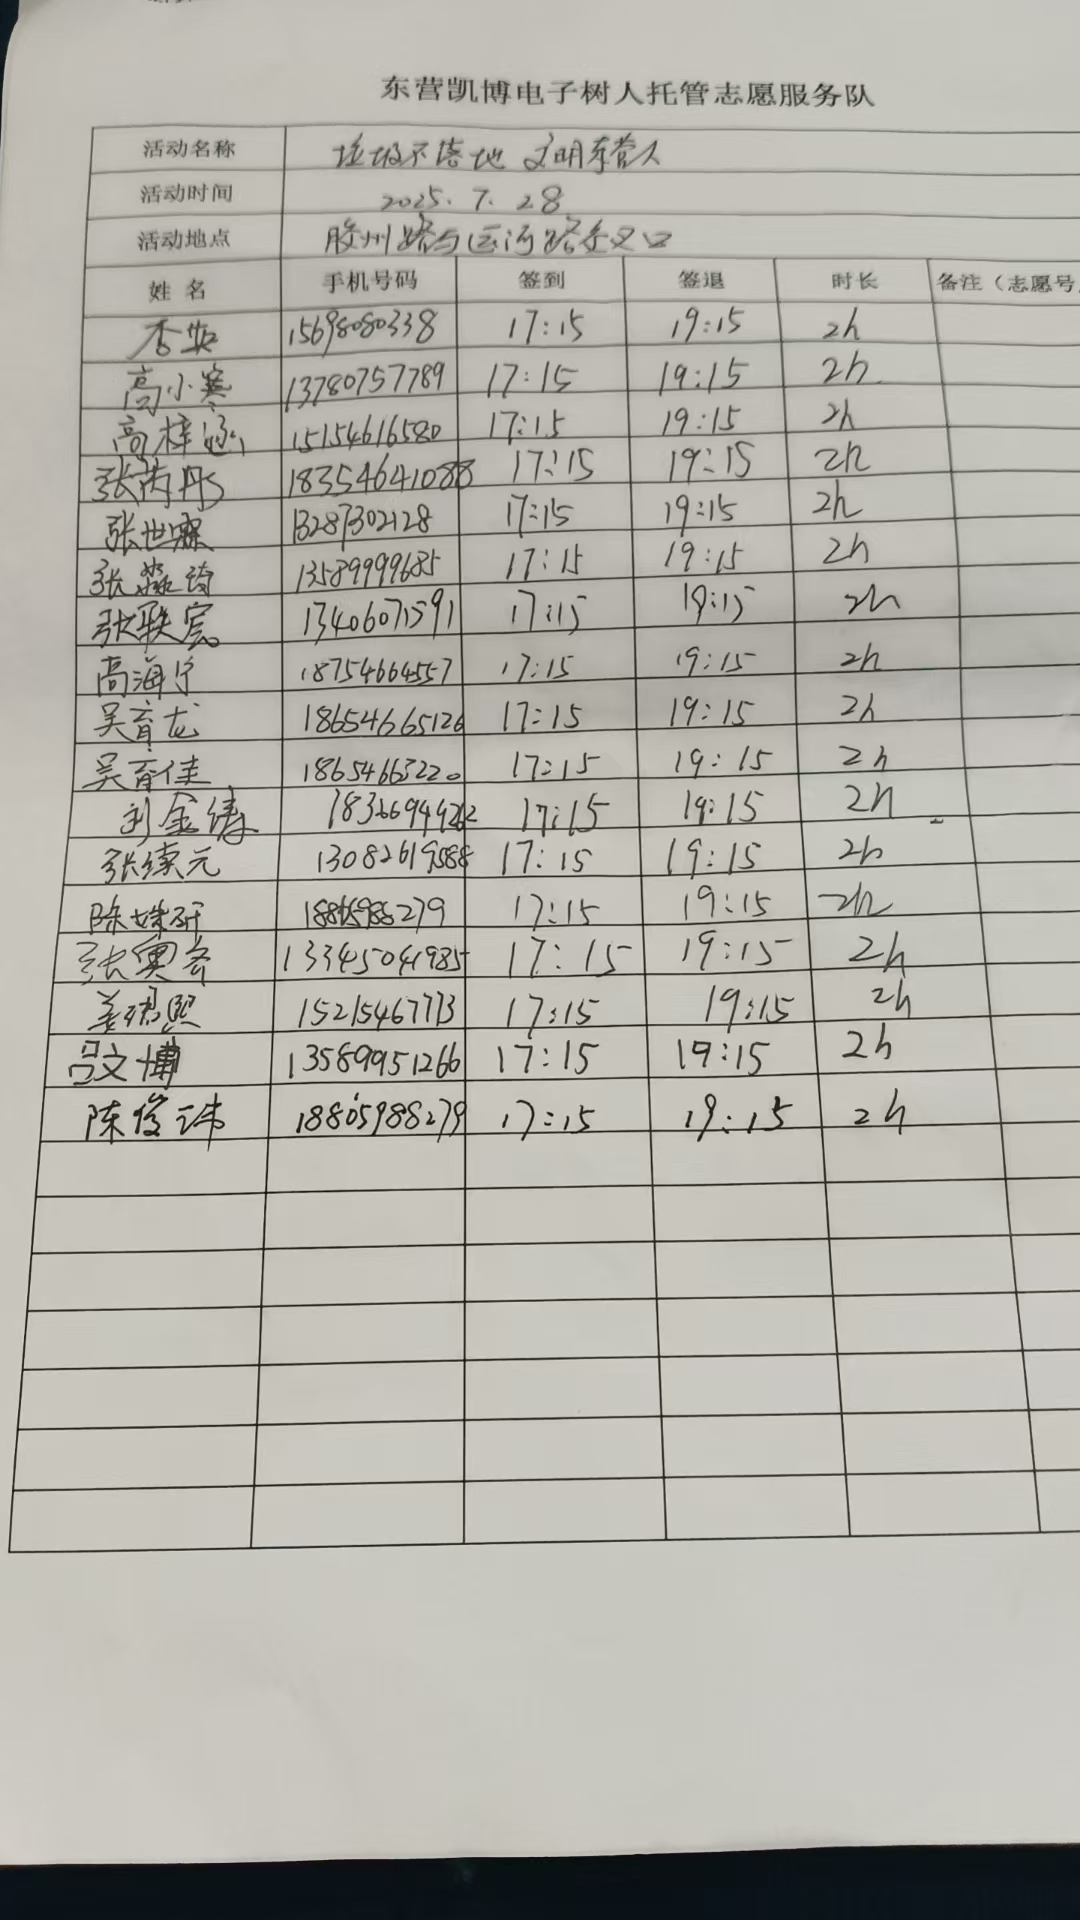 东营凯博电子树人托管志愿服务队
活动名称 垃圾不落地 文明东营人
活动时间 2025.7.28
活动地点 胶州路与运河路交叉口
姓名 手机号码 签到 签退 时长 备注（志愿号
15698080338 17:15 19:15 2h
高小寒 13780757789 17:15 19:15 2h
高梓涵 15154616580 17:15 19:15 2h
张芮彤 18354641088 17:15 19:15 2h
张世霖 13287302128 17:15 19:15 2h
张淼琦 13589999685 17:15 19:15 2h
张轶宸 13406071591 17:15 19:15 2h
高海宁 18754664557 17:15 19:15 2h
吴育龙 18654665126 17:15 19:15 2h
吴育佳 18654665220 17:15 19:15 2h
刘金涛 17:15 19:15 2h
张续元 13082619588 17:15 19:15 2h
陈姝研 17:15 19:15 2h
张奥睿 13345041985 17:15 19:15 2h
姜珺熙 15215467773 17:15 19:15 2h
吕文博 13589951266 17:15 19:15 2h
陈俊玮 18805988279 17:15 19:15 2h